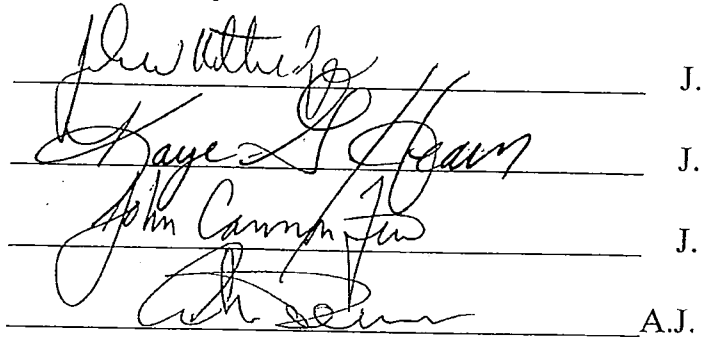 John Kittredge J.
Kaye G Hearn J.
John Cannon Few J.
A.J.